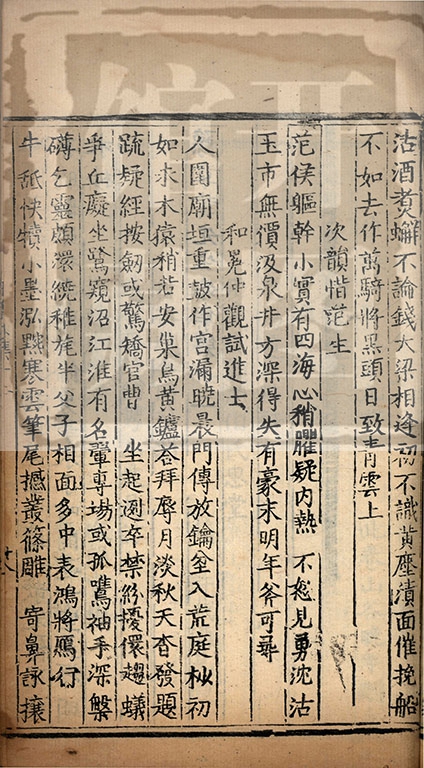 沽酒煮蠏不論錢大梁相逢初不識黄塵漬面催挽船
不如去作萬騎將黒頭日致青雲上
次韻惜范生
范侯軀幹小實有四海心稍臞疑内熱不忽見勇沈沽
玉市無價汲泉井方深得失有豪末明年斧可尋
和冕仲觀試進士
入圍廟垣重鼓作宫漏曉晨門傳放鑰坌入荒庭杪初
如求木猿稍若安巢鳥黄鑪荅拜辱月淡秋天杳發題
疏疑經按劔或驚矯官曹坐起逥卒禁紛擾儇趨蟻
爭丘癡坐鷺窺沼江淮有名轝專塲或孤鶱袖手深槃
礴乞靈頗澴繞稚旄半父子相面多中表鴻將鴈行
牛舐怏犢小墨泓黟寒雲筆尾撼叢篠雕寄鼻詠攘